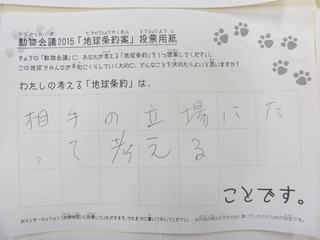 動物会議2015「地球条約案」投票用紙
きょうの「動物会議」に、あなたが考える「地球条約」を1つ提案してください。
この地球でみんなが平和にくらしていくために、どんなことを大切にしたらよいと思いますか?
わたしの考える「地球条約」は、
相手の立場にた
って考える
ことです。